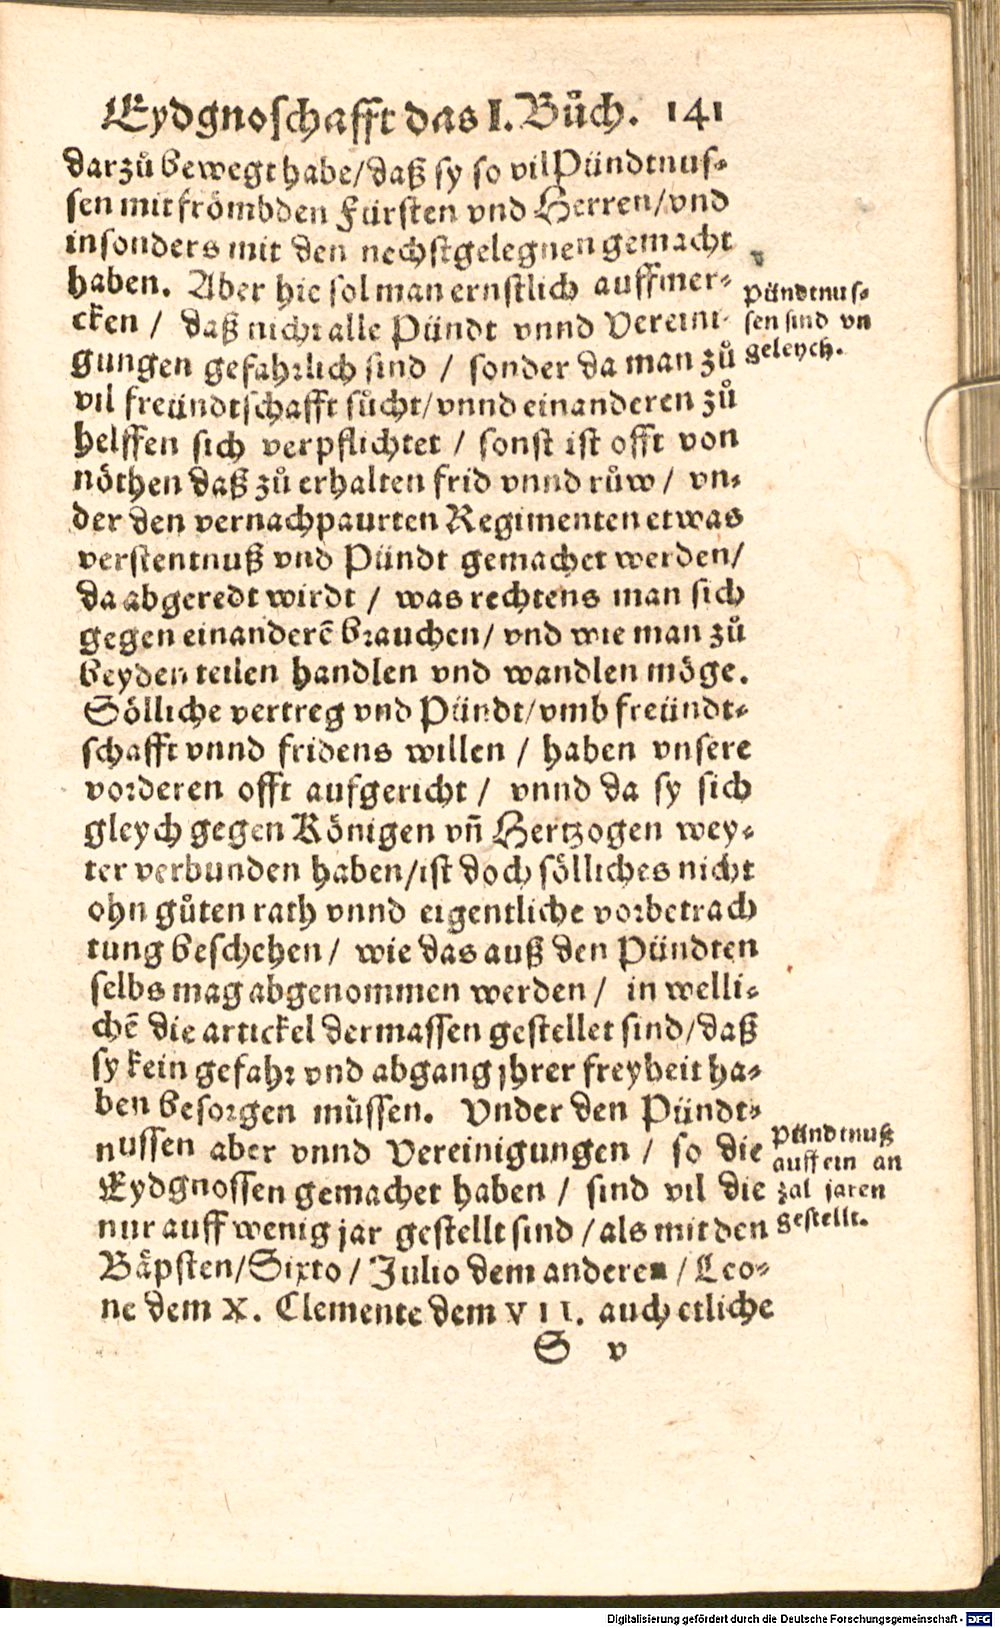 Eydgnoschafft das I. Bůch. 141
darzů bewegt habe/daß sy so vil Pündtnus⸗
sen mit frömbden Fürsten vnd Herren/vnd
insonders mit den nechstgelegnen gemacht
haben. Aber hie sol man ernstlich auffmer⸗
cken / daß nicht alle Pündt vnnd Vereini⸗
gungen gefahrlich sind / sonder da man zů
vil freündtschafft sůcht/vnnd einanderen zů
helffen sich verpflichtet / sonst ist offt von
nöthen daß zů erhalten frid vnnd růw / vn⸗
der den vernachpaurten Regimenten etwas
verstentnuß vnd Pündt gemachet werden/
da abgeredt wirdt / was rechtens man sich
gegen einanderē brauchen/ vnd wie man zů
beyden teilen handlen vnd wandlen möge.
Sölliche vertreg vnd Pündt/vmb freündt⸗
schafft vnnd fridens willen / haben vnsere
vorderen offt aufgericht / vnnd da sy sich
gleych gegen Königen vñ Hertzogen wey⸗
ter verbunden haben/ist doch sölliches nicht
ohn gůten rath vnnd eigentliche vorbetrach
tung beschehen/ wie das auß den Pündten
selbs mag abgenommen werden / in welli⸗
chē die artickel dermassen gestellet sind/daß
sy kein gefahr vnd abgang jhrer freyheit ha⸗
ben besorgen müssen. Vnder den Pündt⸗
nussen aber vnnd Vereinigungen / so die
Eydgnossen gemachet haben / sind vil die
nur auff wenig jar gestellt sind / als mit den
Bäpsten/Sixto / Julio dem anderen / Leo⸗
ne dem X. Clemente dem VII. auch etliche
S v
Pündtnus⸗
sen sind vn
geleych.
Pündtnuß
auff ein an
zal jaren
gestellt.
Digitalisierung gefördert durch die Deutsche Forschungsgemeinschaft - DFG